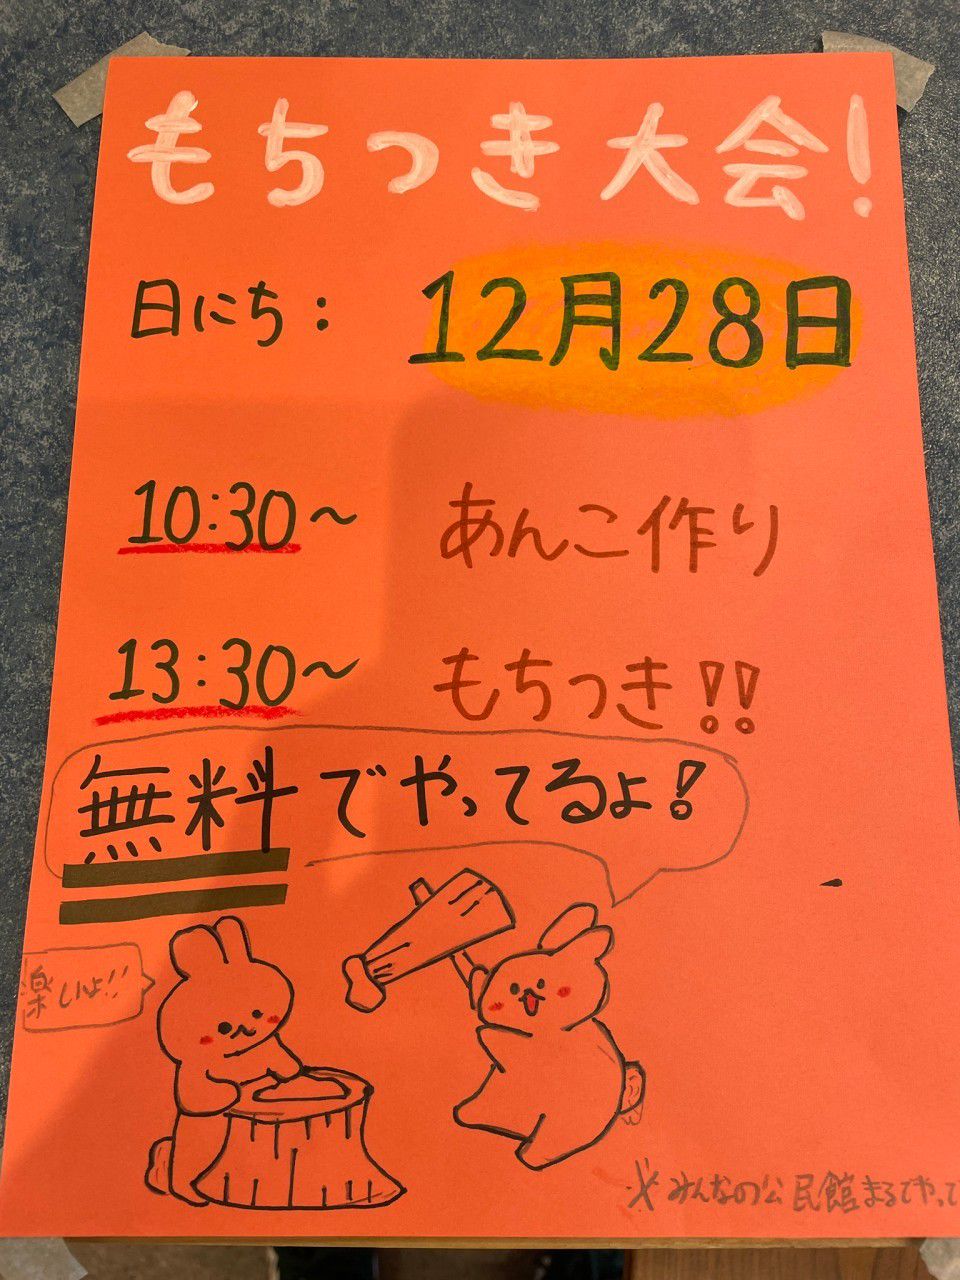 もちつき大会!
日にち: 12月28日
10:30〜 あんこ作り
13:30〜 もちつき!!
無料でやってるよ!
楽しいよ!!
※みんなの公民館まるでやって